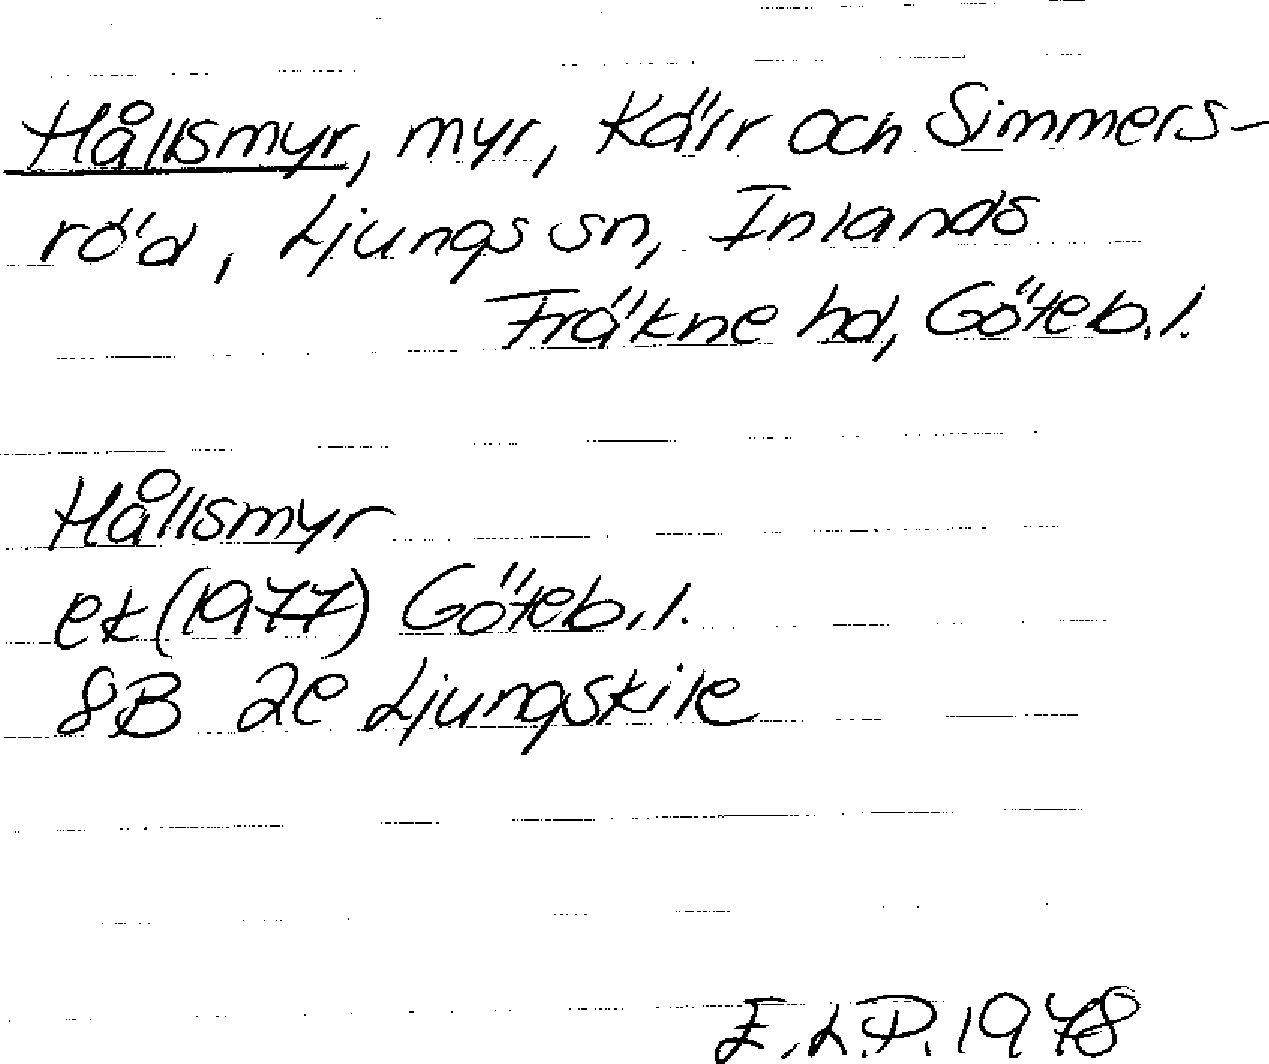 Hållsmyr, myr, Kärr och Simmers-
röd, Ljungs sn, Inlands
Fräkne hd, Göteb.l.
Hållsmyr
ek (1977) Göteb.l.
8B 2e Ljungskile
E.L.P. 1978